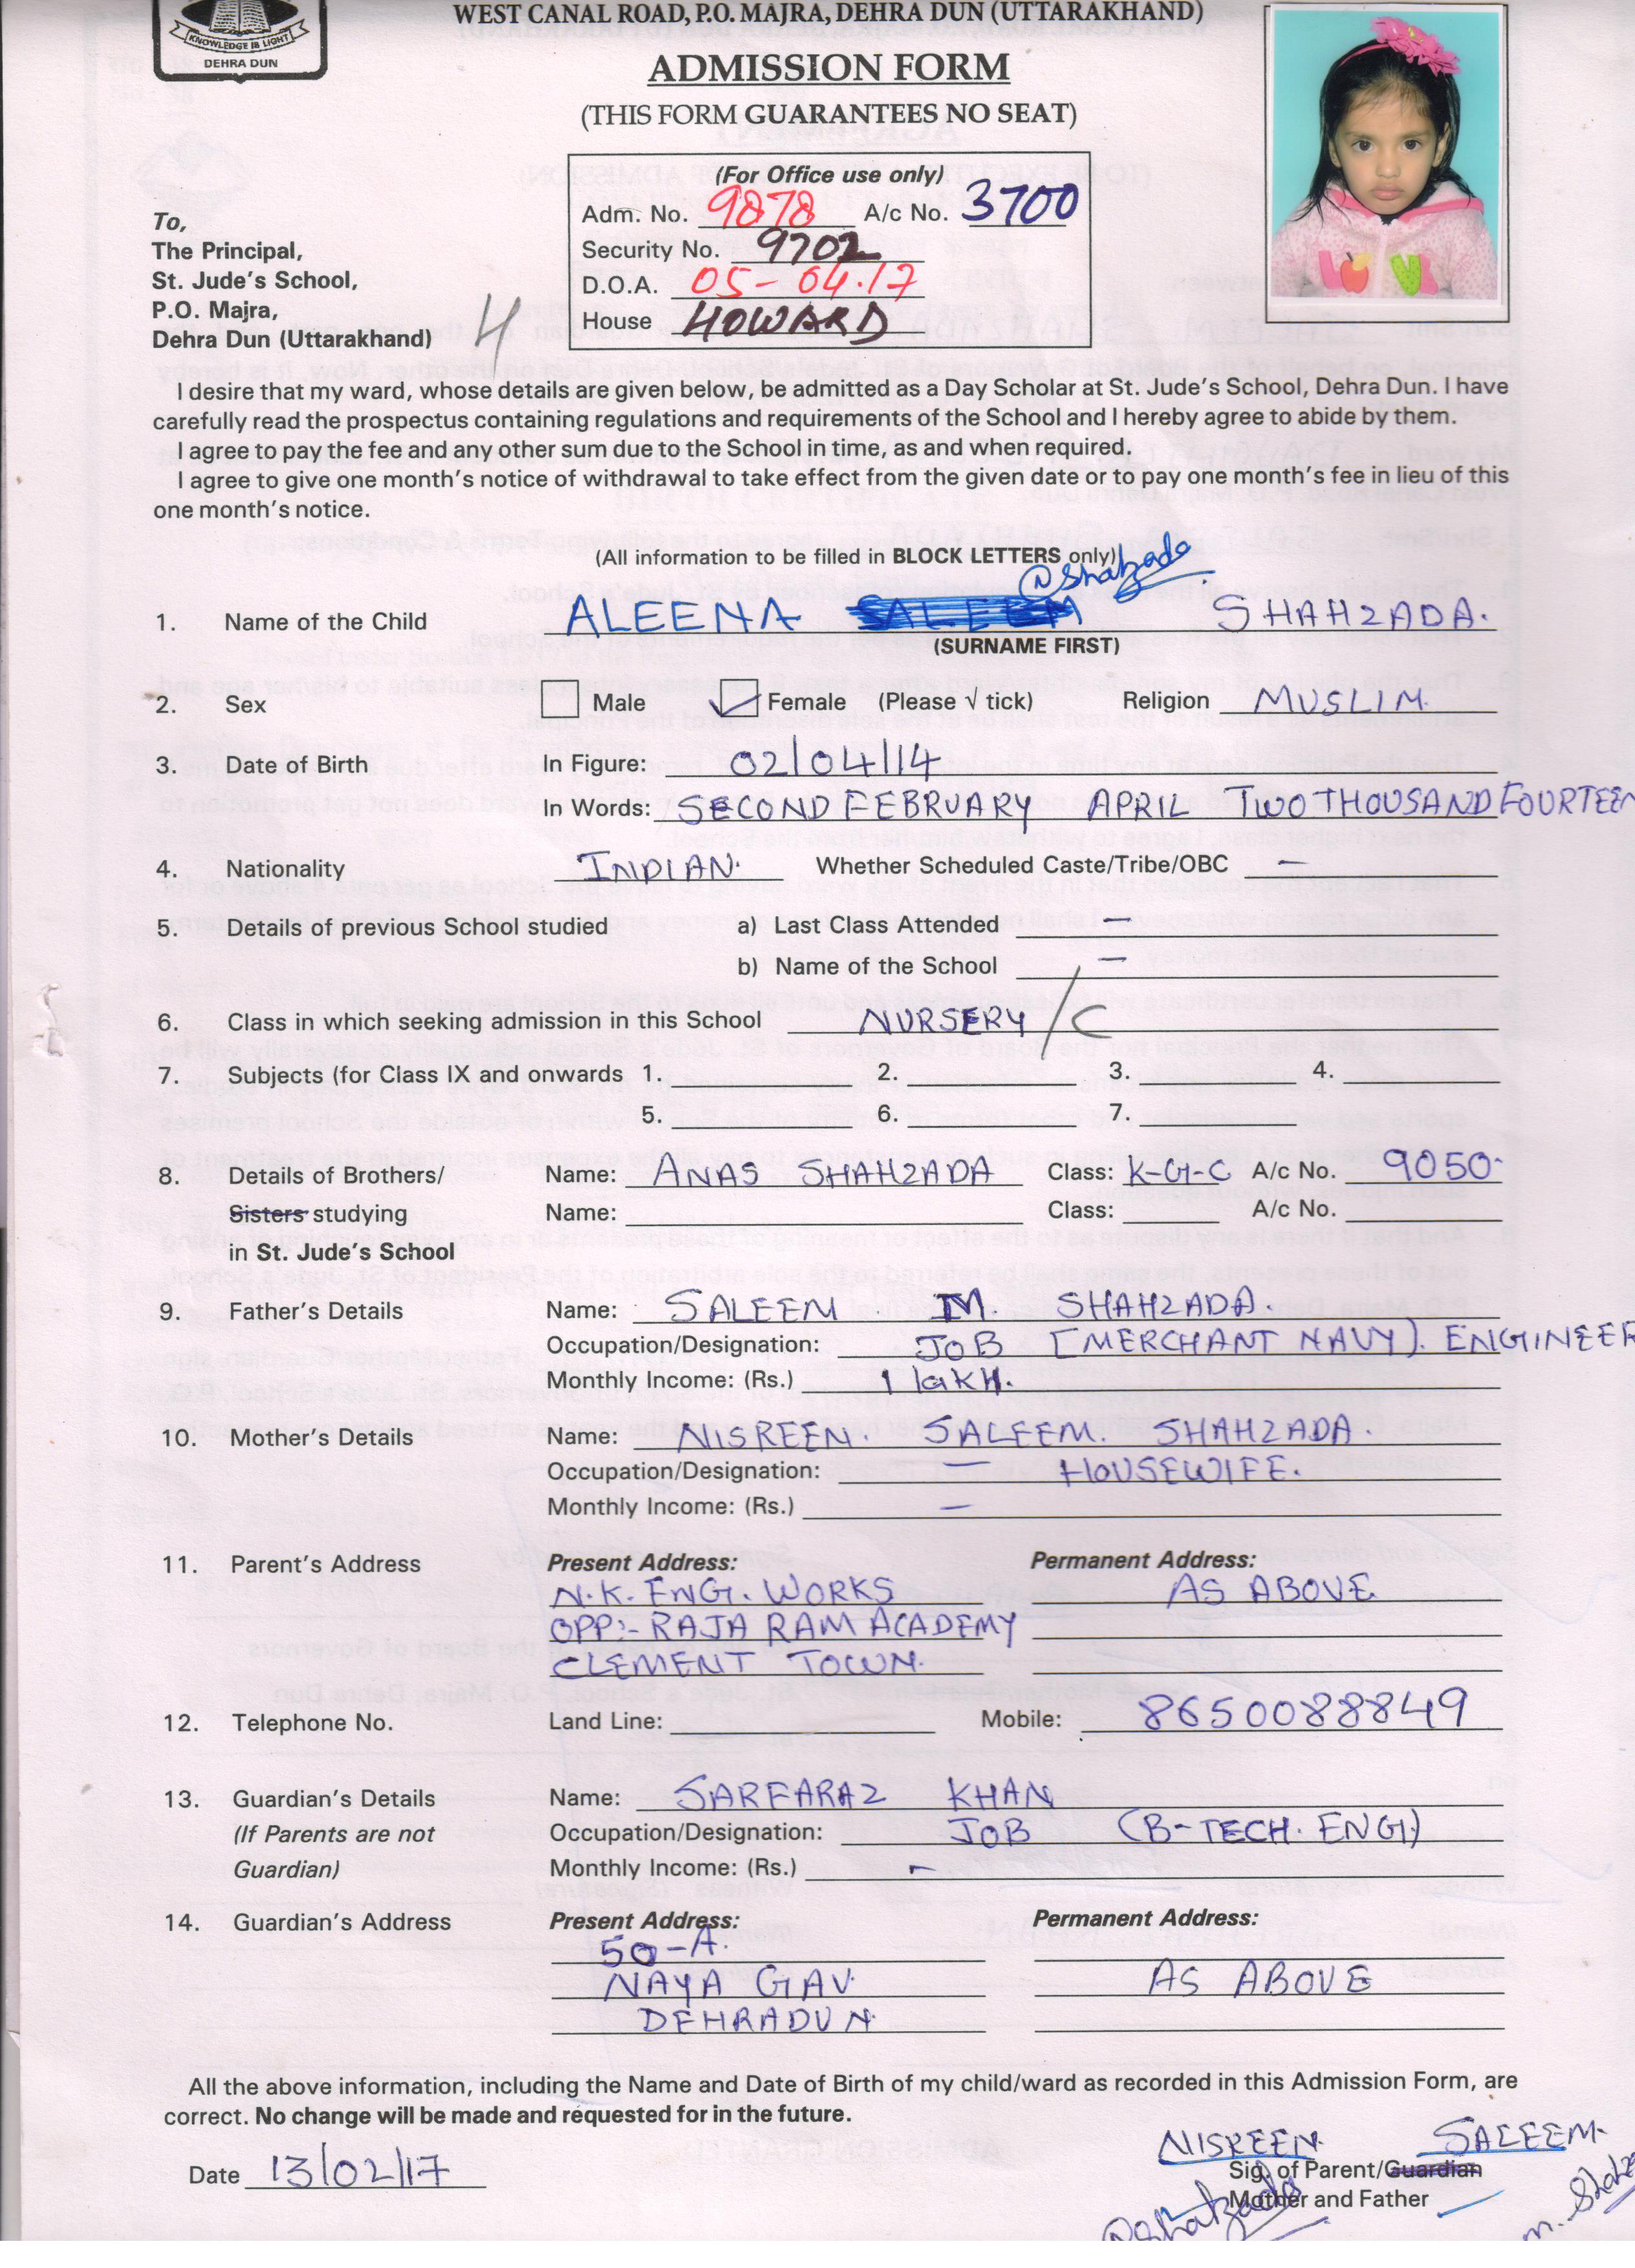 WEST CANAL ROAD, P.O. MAJRA, DEHRA DUN (UTTARAKHAND)
KNOWLEDGE IS LIGHT
DEHRA DUN
ADMISSION FORM
(THIS FORM GUARANTEES NO SEAT)
(For Office use only)
Adm. No. 9878 A/c No. 3700
Security No. 9702
D.O.A. 05-04.17
House HOWARD
To,
The Principal,
St. Jude's School,
P.O. Majra,
Dehra Dun (Uttarakhand)
I desire that my ward, whose details are given below, be admitted as a Day Scholar at St. Jude's School, Dehra Dun. I have
carefully read the prospectus containing regulations and requirements of the School and I hereby agree to abide by them.
I agree to pay the fee and any other sum due to the School in time, as and when required.
I agree to give one month's notice of withdrawal to take effect from the given date or to pay one month's fee in lieu of this
one month's notice.
(All information to be filled in BLOCK LETTERS only)
@Shahzada
1. Name of the Child ALEENA SALEEM SHAHZADA.
(SURNAME FIRST)
2. Sex Male Female (Please √ tick) Religion MUSLIM.
3. Date of Birth In Figure: 02/04/14
In Words: SECOND FEBRUARY APRIL TWO THOUSAND FOURTEEN
4. Nationality INDIAN. Whether Scheduled Caste/Tribe/OBC —
5. Details of previous School studied a) Last Class Attended —
b) Name of the School —
6. Class in which seeking admission in this School NURSERY/C
7. Subjects (for Class IX and onwards 1. 2. 3. 4.
5. 6. 7.
8. Details of Brothers/ Name: ANAS SHAHZADA Class: K-G-C A/c No. 9050-
Sisters studying Name: Class: A/c No.
in St. Jude's School
9. Father's Details Name: SALEEM M. SHAHZADA.
Occupation/Designation: JOB [MERCHANT NAVY). ENGINEER
Monthly Income: (Rs.) 1 lakh.
10. Mother's Details Name: NISREEN. SALEEM. SHAHZADA.
Occupation/Designation: — HOUSEWIFE.
Monthly Income: (Rs.) —
11. Parent's Address Present Address: Permanent Address:
N.K. ENG. WORKS AS ABOVE
OPP:- RAJA RAM ACADEMY
CLEMENT TOWN.
12. Telephone No. Land Line: Mobile: 8650088849
13. Guardian's Details Name: SARFARAZ KHAN
(If Parents are not Occupation/Designation: JOB (B-TECH. ENG.)
Guardian) Monthly Income: (Rs.) -
14. Guardian's Address Present Address: Permanent Address:
50-A.
NAYA GAV. AS ABOVE
DEHRADUN.
All the above information, including the Name and Date of Birth of my child/ward as recorded in this Admission Form, are
correct. No change will be made and requested for in the future.
NISREEN SALEEM.
Date 13/02/17 Sig. of Parent/Guardian
Mother and Father
@Shahzada